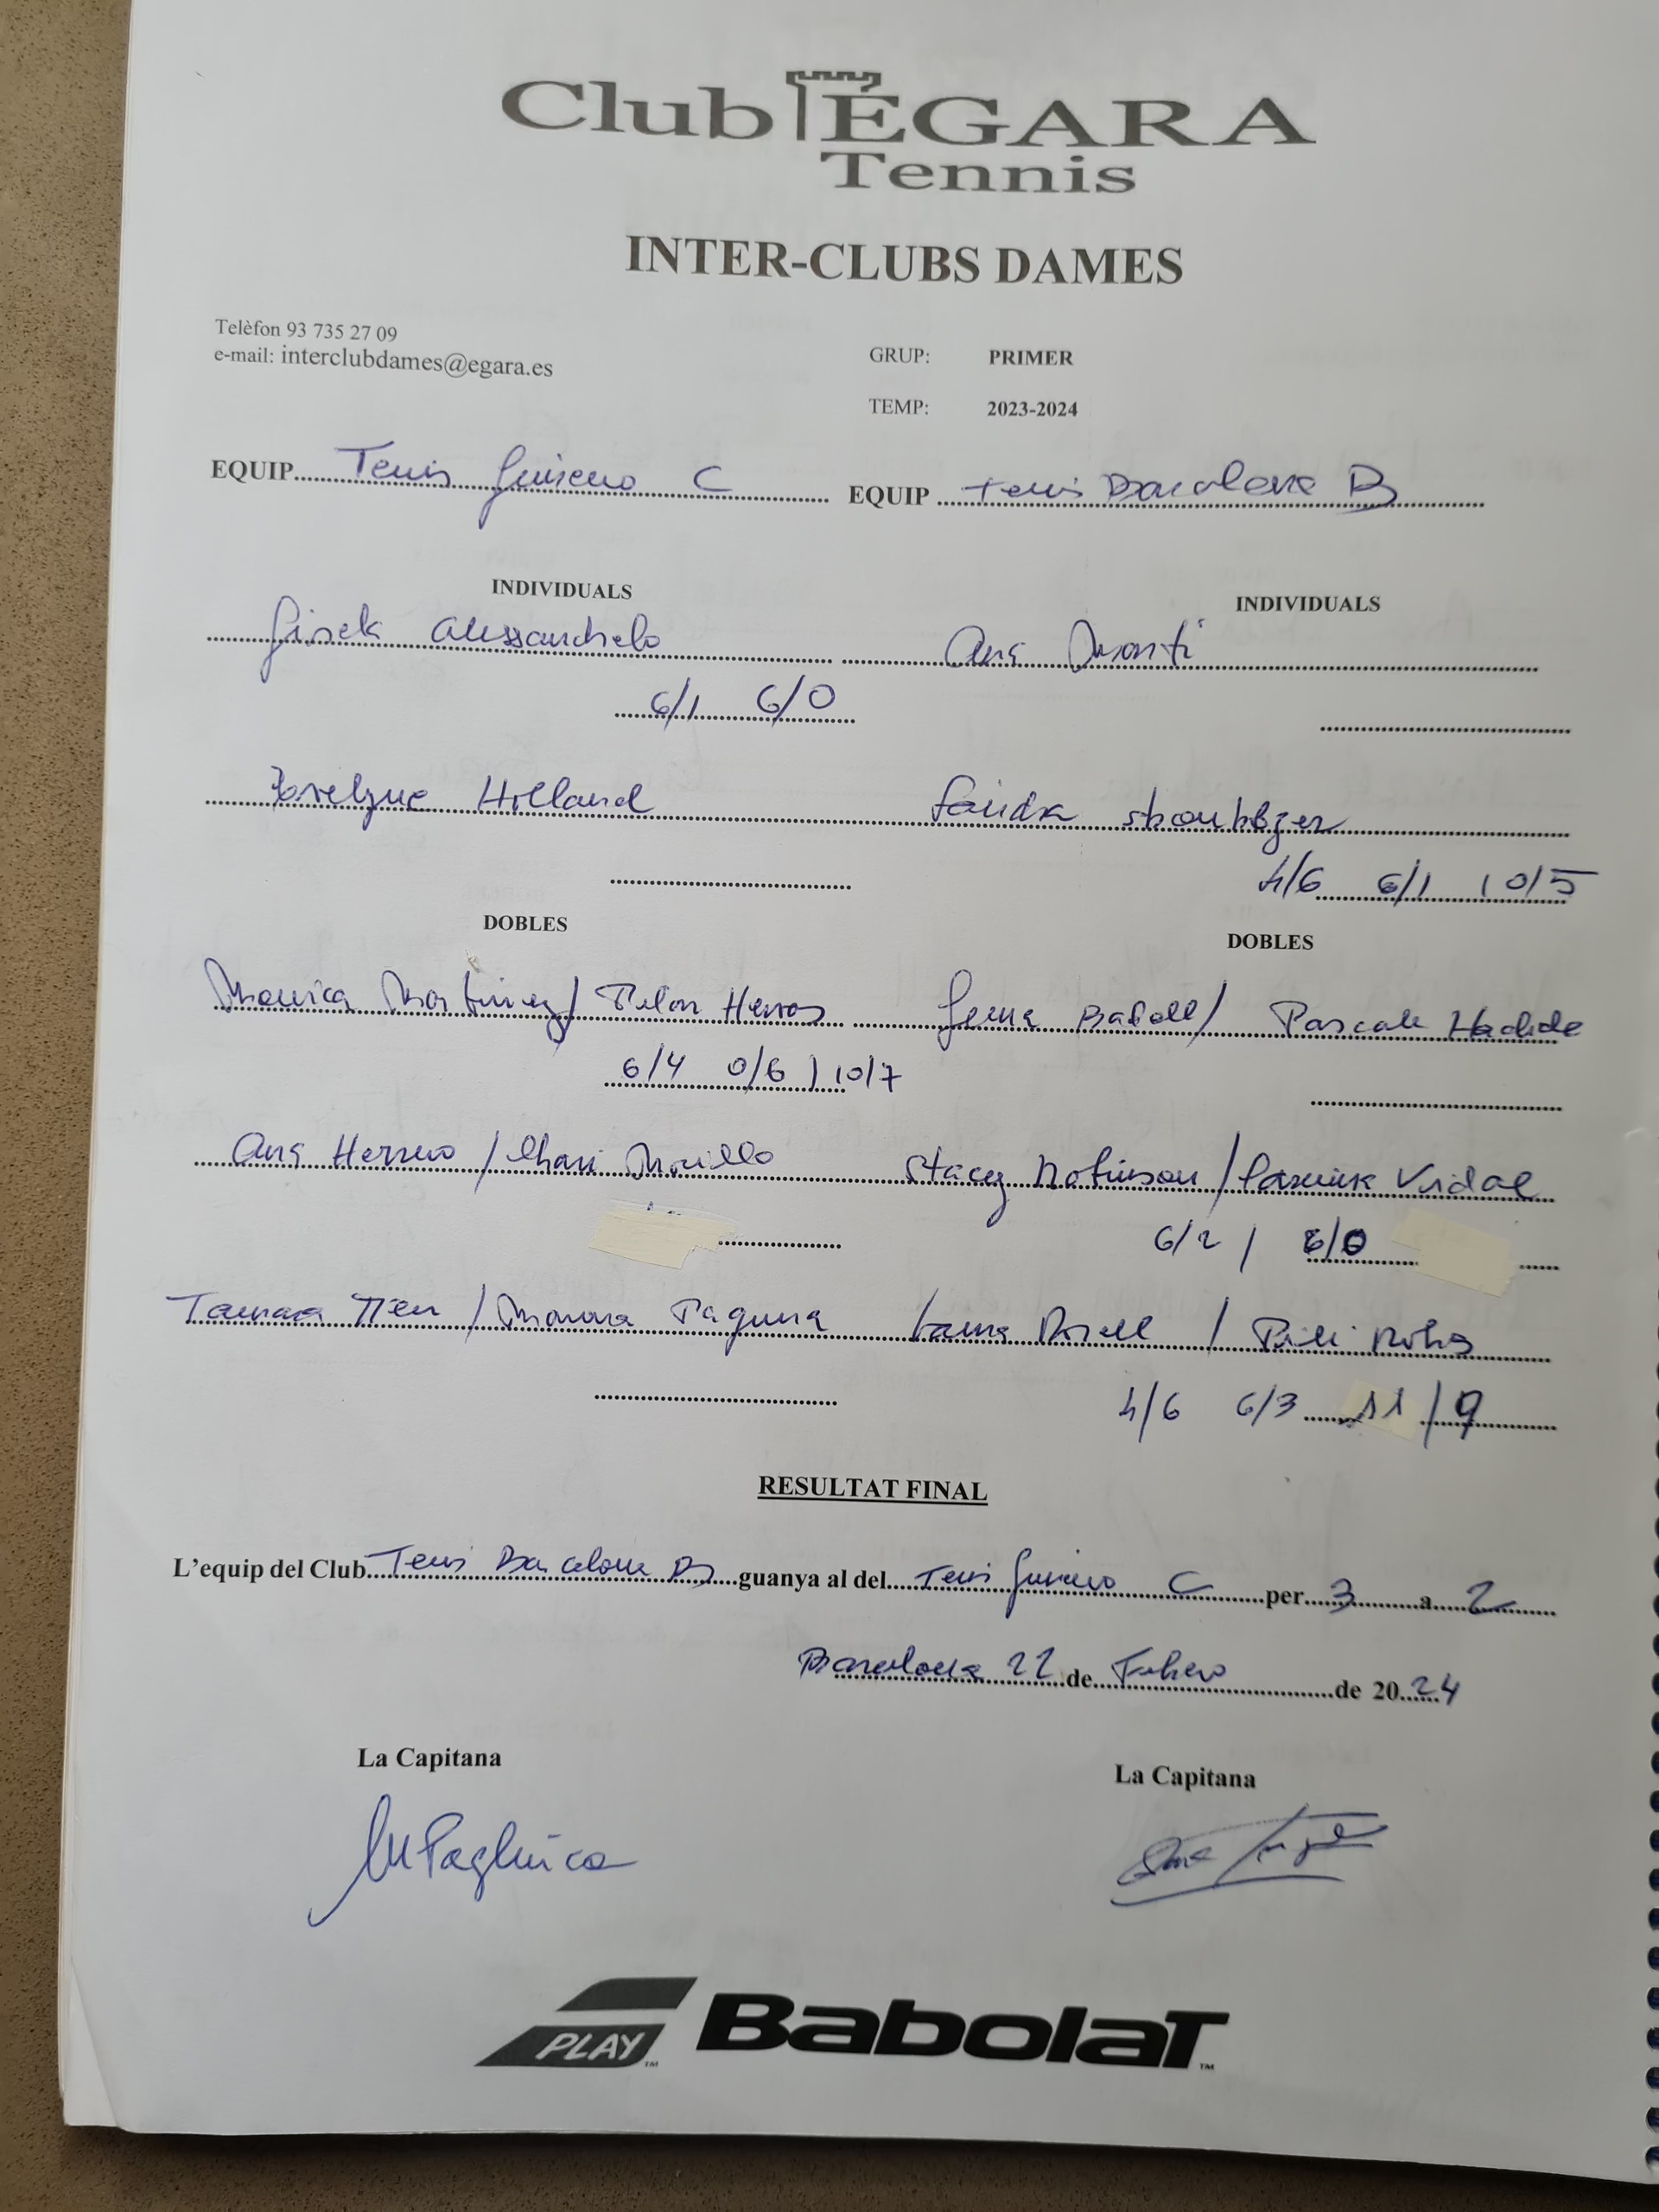 Club ÉGARA
Tennis
INTER-CLUBS DAMES
Telèfon 93 735 27 09
e-mail: interclubdames@egara.es
GRUP: PRIMER
TEMP: 2023-2024
EQUIP Tenis C EQUIP Tenis Barcelona B
INDIVIDUALS INDIVIDUALS
Gisela Ana
6/1 6/0
Holland
4/6 6/1 10/5
DOBLES DOBLES
Monica Martinez / Gema / Pascale
6/4 0/6 / 10/7
Ana Herrero / Stacey Robinson / Vidal
6/2 / 6/0
/ Laura Rosell / Pili
4/6 6/3 11/9
RESULTAT FINAL
L'equip del Club Tenis Barcelona B guanya al del Tenis C per 3 a 2
Barcelona 22 de Febrero de 2024
La Capitana La Capitana
PLAY BabolaT